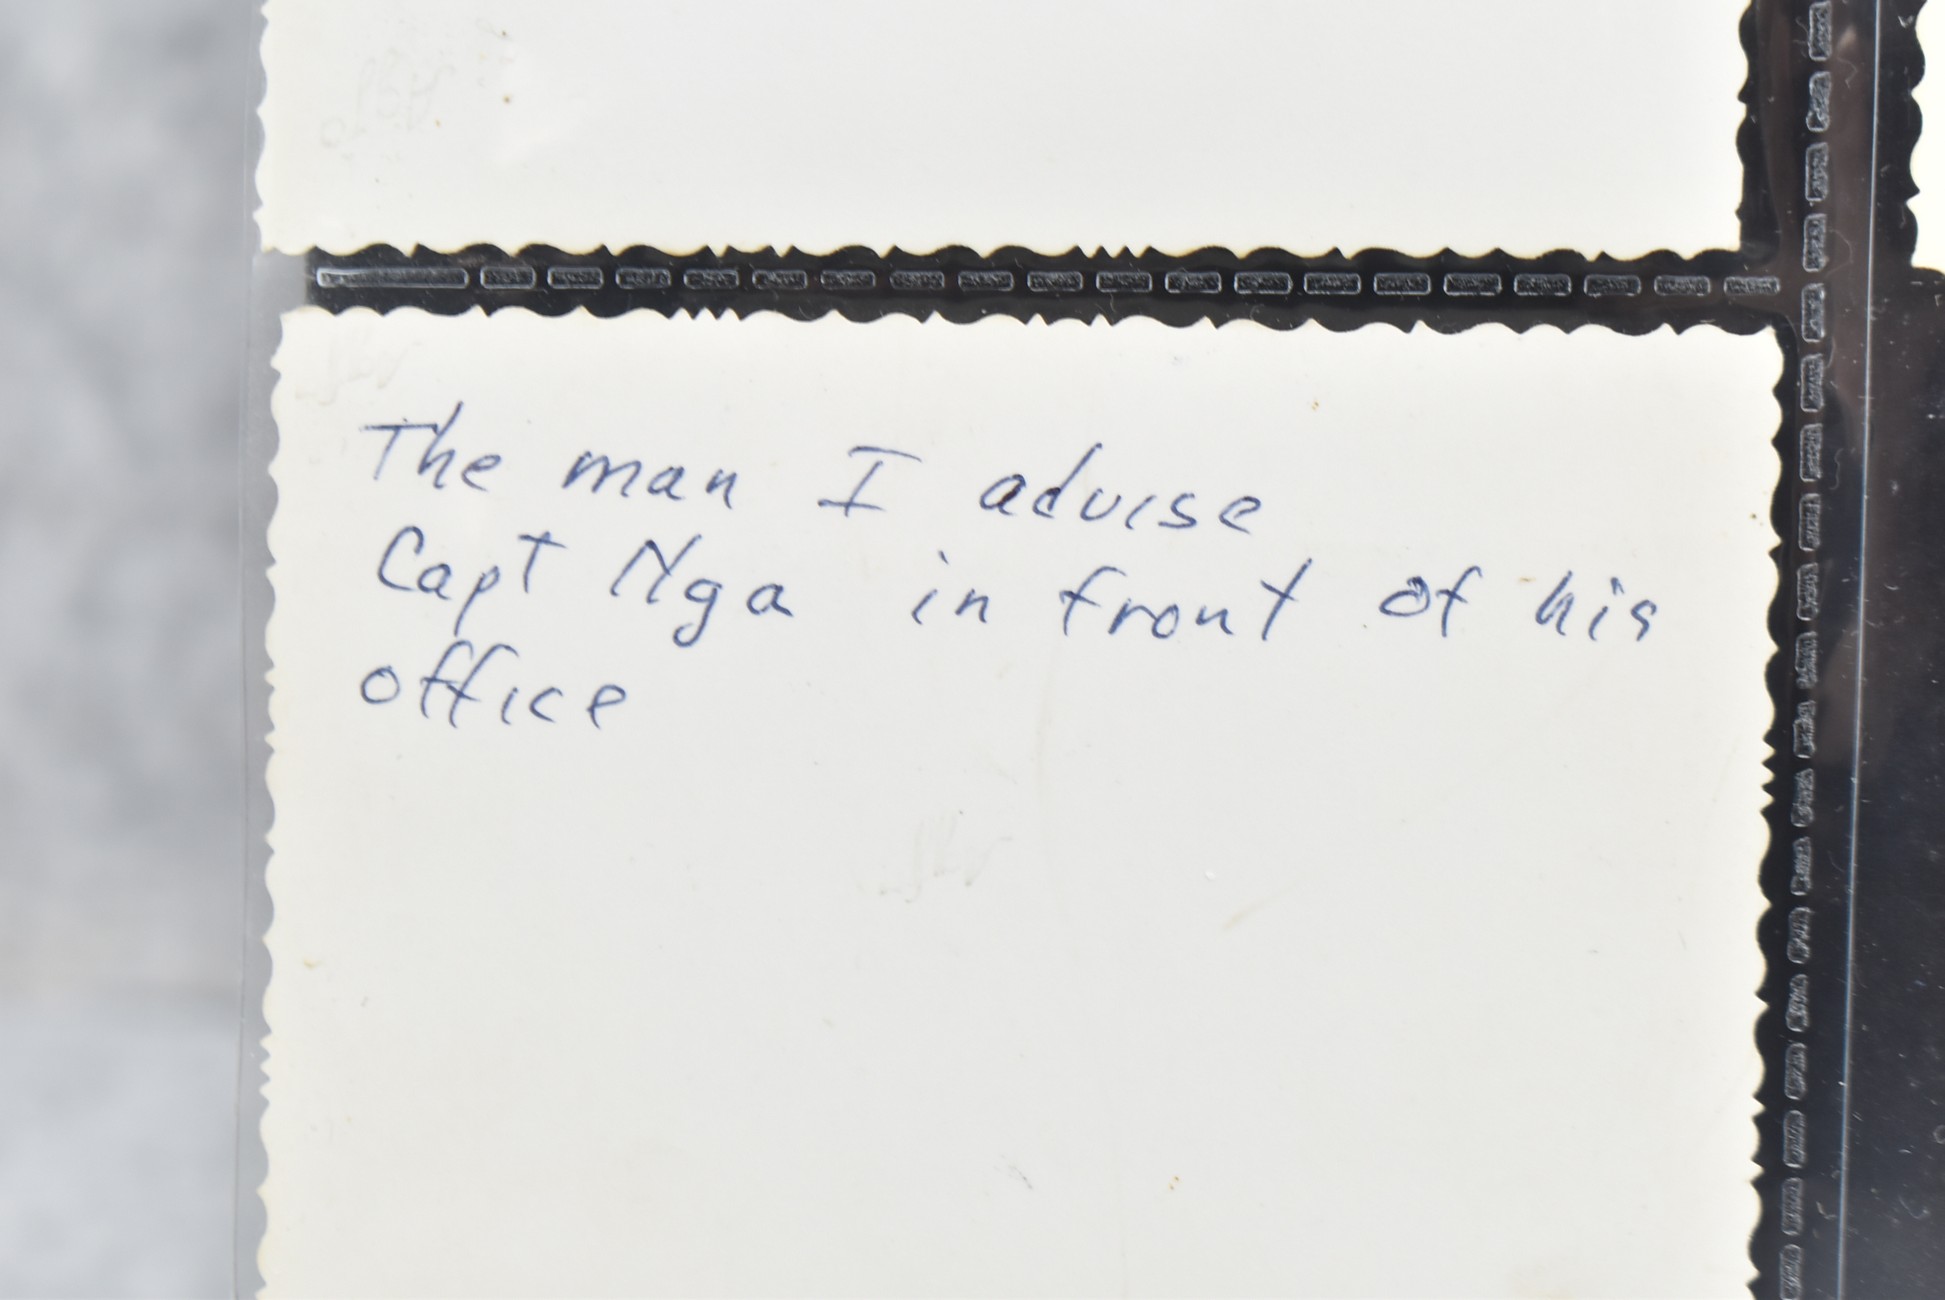 The man I advise
Capt Nga in front of his
office